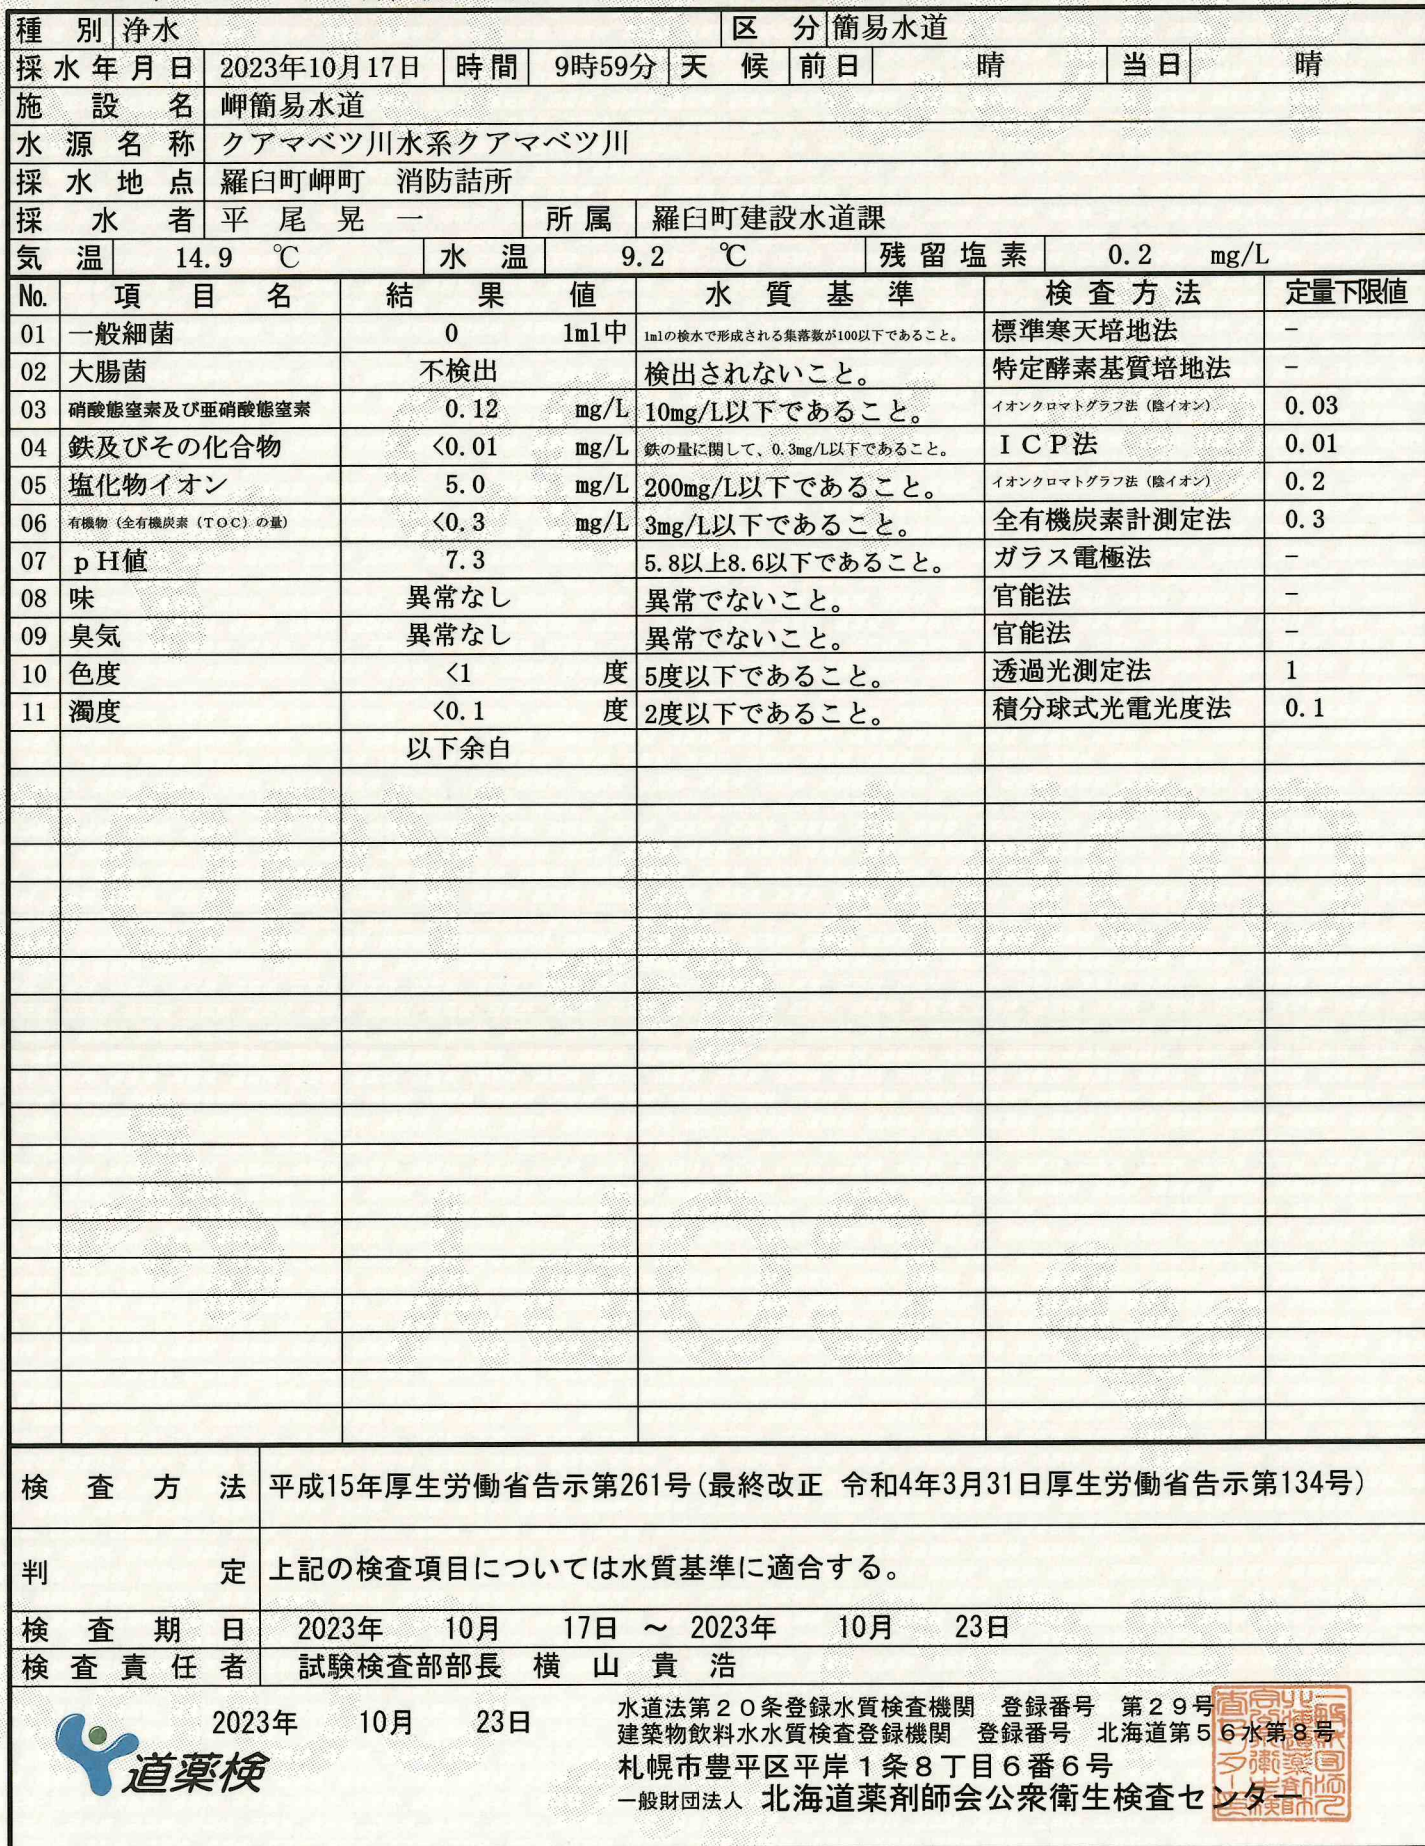 種別 浄水 区分 簡易水道
採水年月日 2023年10月17日 時間 9時59分 天候 前日 晴 当日 晴
施設名 岬簡易水道
水源名称 クアマベツ川水系クアマベツ川
採水地点 羅臼町岬町 消防詰所
採水者 平尾晃一 所属 羅臼町建設水道課
気温 14.9 ℃ 水温 9.2 ℃ 残留塩素 0.2 mg/L
No. 項目名 結果値 水質基準 検査方法 定量下限値
01 一般細菌 0 1ml中 1mlの検水で形成される集落数が100以下であること。 標準寒天培地法 −
02 大腸菌 不検出 検出されないこと。 特定酵素基質培地法 −
03 硝酸態窒素及び亜硝酸態窒素 0.12 mg/L 10mg/L以下であること。 イオンクロマトグラフ法（陰イオン） 0.03
04 鉄及びその化合物 <0.01 mg/L 鉄の量に関して、0.3mg/L以下であること。 ＩＣＰ法 0.01
05 塩化物イオン 5.0 mg/L 200mg/L以下であること。 イオンクロマトグラフ法（陰イオン） 0.2
06 有機物（全有機炭素（ＴＯＣ）の量） <0.3 mg/L 3mg/L以下であること。 全有機炭素計測定法 0.3
07 ｐＨ値 7.3 5.8以上8.6以下であること。 ガラス電極法 −
08 味 異常なし 異常でないこと。 官能法 −
09 臭気 異常なし 異常でないこと。 官能法 −
10 色度 <1 度 5度以下であること。 透過光測定法 1
11 濁度 <0.1 度 2度以下であること。 積分球式光電光度法 0.1
以下余白
COPY COPY
COPY
検査方法 平成15年厚生労働省告示第261号(最終改正 令和4年3月31日厚生労働省告示第134号)
判定 上記の検査項目については水質基準に適合する。
検査期日 2023年 10月 17日 ～ 2023年 10月 23日
検査責任者 試験検査部部長 横山貴浩
2023年 10月 23日
道薬検
水道法第２０条登録水質検査機関 登録番号 第２９号
建築物飲料水水質検査登録機関 登録番号 北海道第５６水第８号
札幌市豊平区平岸１条８丁目６番６号
一般財団法人 北海道薬剤師会公衆衛生検査センター